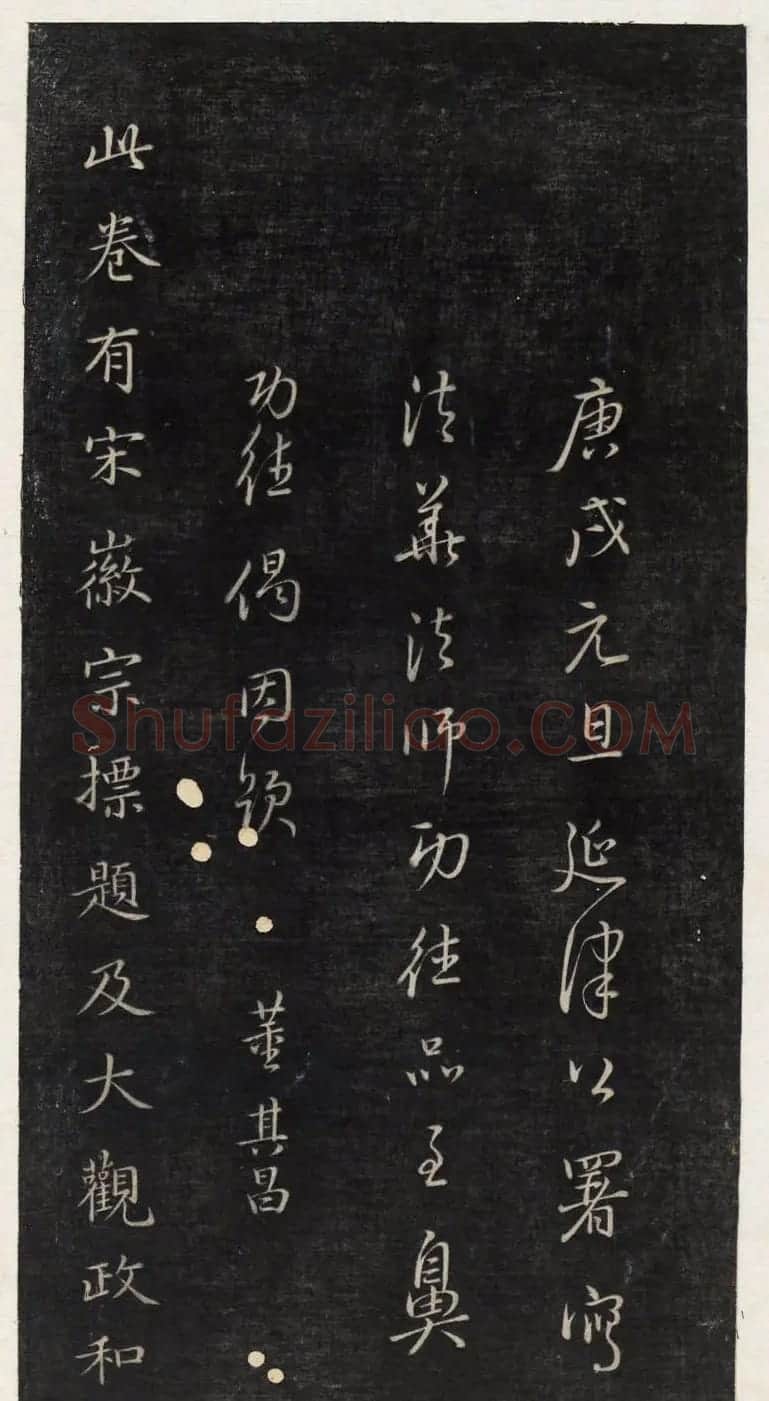 庚戌元旦延津公署寫
法華法師功德品至鼻
功德偈因題 董其昌
此卷有宋徽宗標題及大觀政和
Shufaziliao.COM